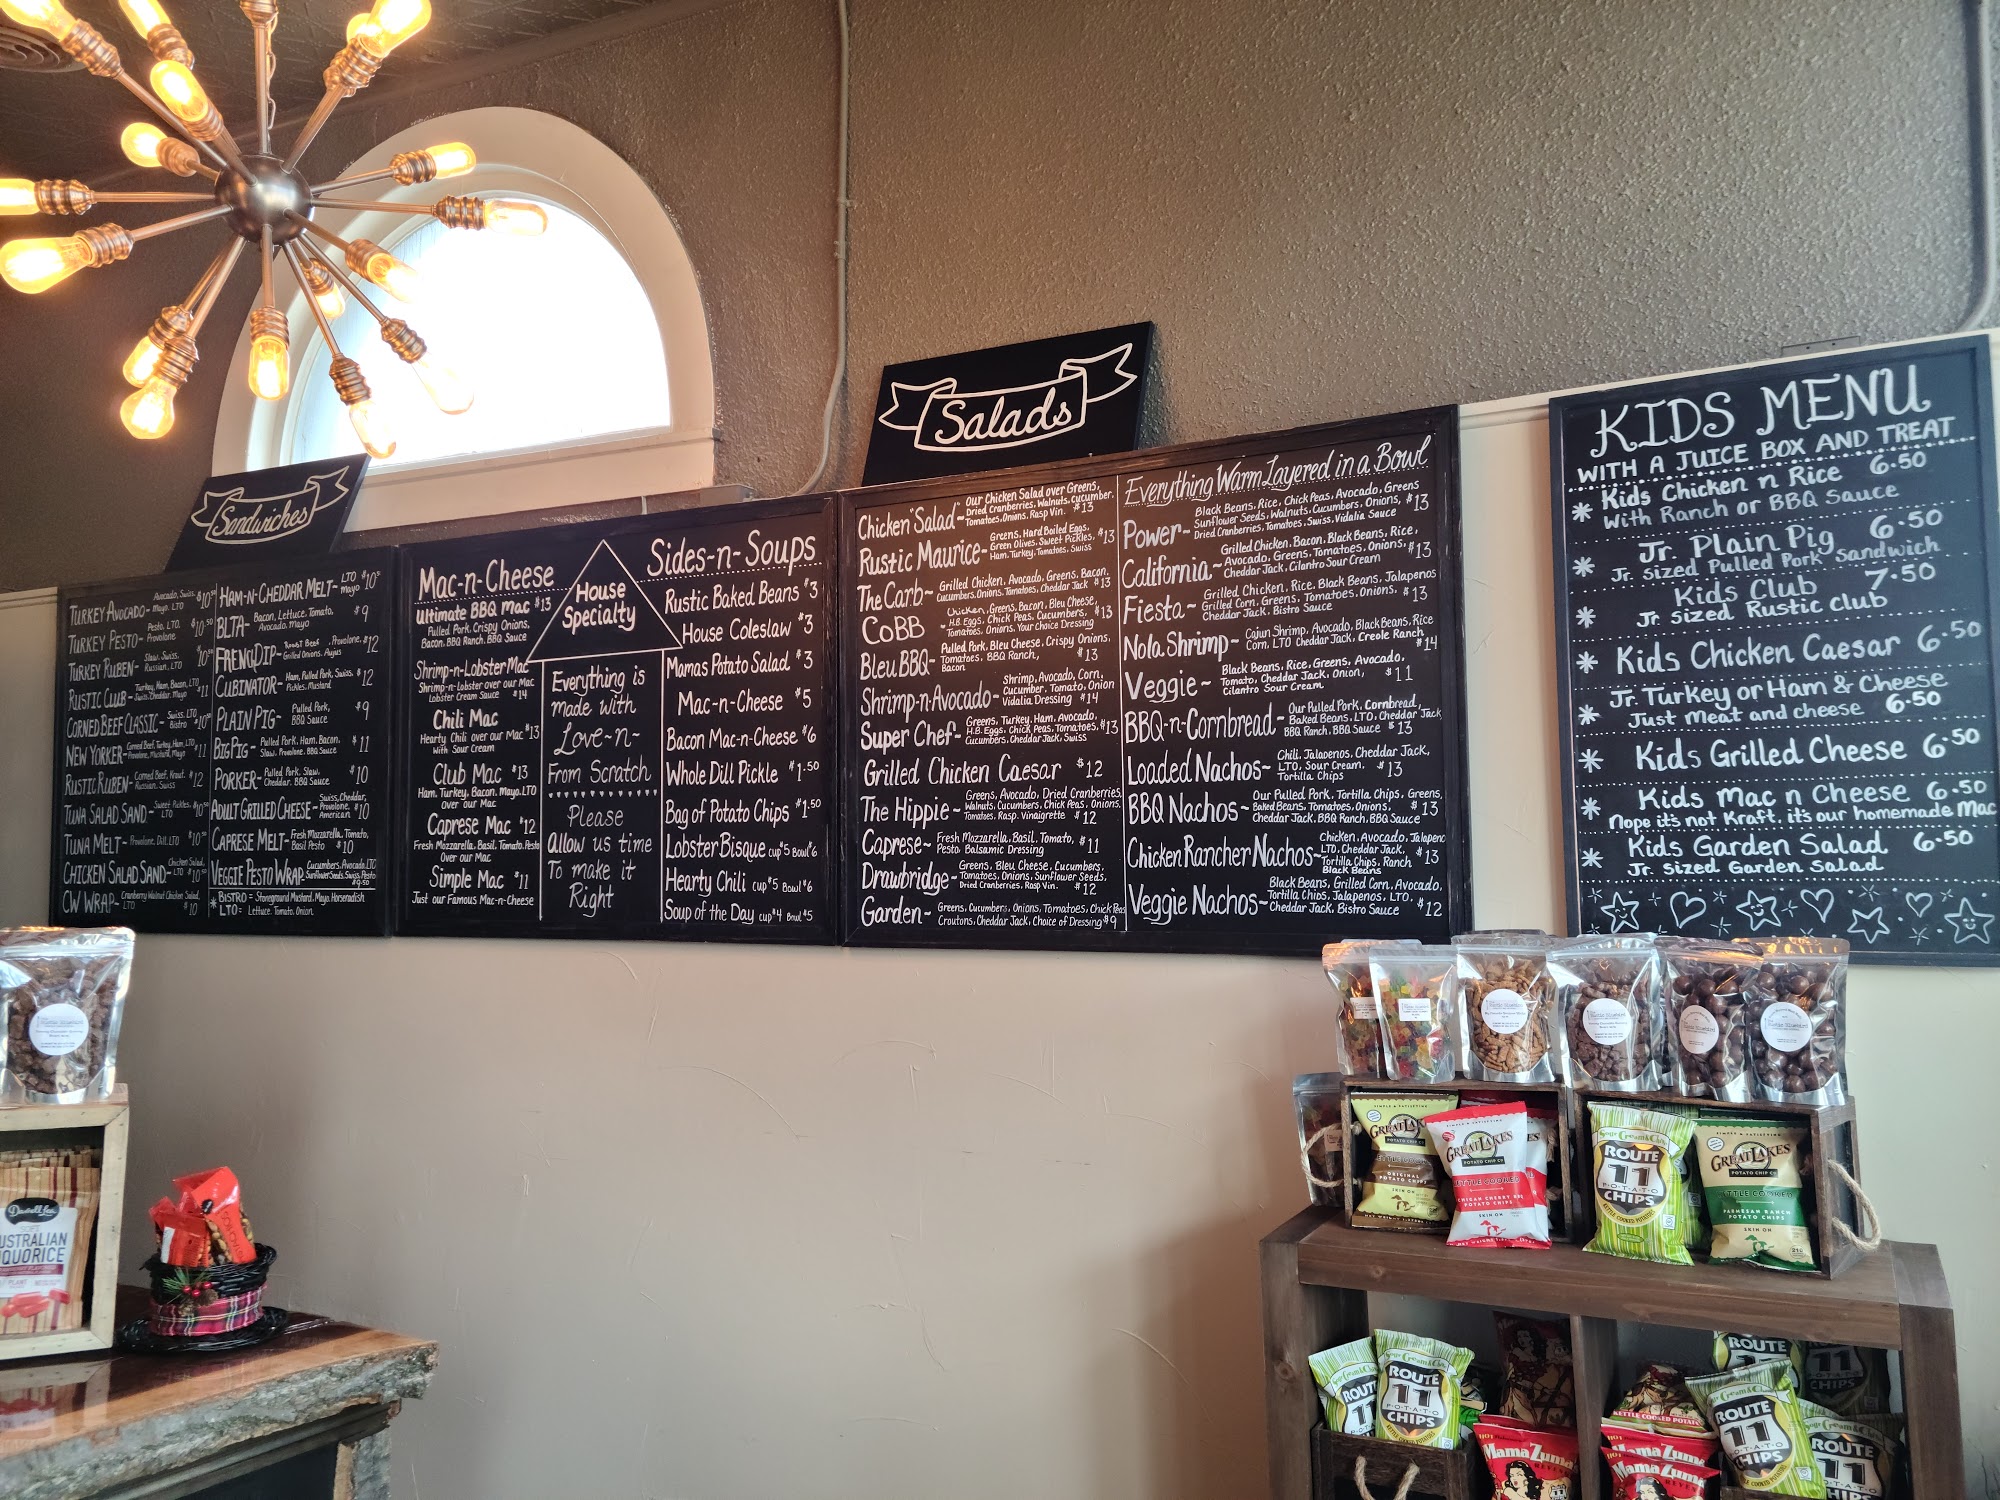 Sandwiches
TURKEY AVOCADO- Avocado, Swiss, Mayo, LTO $10.50
TURKEY PESTO- Pesto, LTO, Provolone $10.50
TURKEY RUBEN- Slaw, Swiss, Russian, LTO $10.50
RUSTIC CLUB- Turkey, Ham, Bacon, LTO Swiss, Cheddar, Mayo $11
CORNED BEEF CLASSIC- Swiss, LTO Bistro $10.50
NEW YORKER- Corned Beef, Turkey, Ham, LTO, Provolone, Mustard, Mayo $11
RUSTIC RUBEN- Corned Beef, Kraut, Russian, Swiss $12
TUNA SALAD SAND- Sweet Pickles, LTO $10.50
TUNA MELT- Provolone, Dill, LTO $10.50
CHICKEN SALAD SAND.- Chicken Salad, LTO $10.50
CW WRAP- Cranberry Walnut Chicken Salad, LTO $10
HAM-N-CHEDDAR MELT- LTO Mayo $10.50
BLTA- Bacon, Lettuce, Tomato, Avocado, Mayo $9
FRENCH DIP- Roast Beef, Provolone, Grilled Onions, Aujus $12
CUBINATOR- Ham, Pulled Pork, Swiss, Pickles, Mustard $12
PLAIN PIG- Pulled Pork, BBQ Sauce $9
BIG PIG- Pulled Pork, Ham, Bacon, Slaw, Provolone, BBQ Sauce $11
PORKER- Pulled Pork, Slaw, Cheddar, BBQ Sauce $10
ADULT GRILLED CHEESE- Swiss, Cheddar, Provolone, American $10
CAPRESE MELT- Fresh Mozzarella, Tomato, Basil Pesto $10
VEGGIE PESTO WRAP- Cucumbers, Avocado, LTO Sunflower Seeds, Swiss, Pesto $9.50
* BISTRO = Stoneground Mustard, Mayo, Horseradish
LTO = Lettuce, Tomato, Onion
Mac-n-Cheese
Ultimate BBQ Mac $13
Pulled Pork, Crispy Onions,
Bacon, BBQ Ranch, BBQ Sauce
Shrimp-n-Lobster Mac
Shrimp-n-Lobster over our Mac
Lobster Cream Sauce $14
Chili Mac
Hearty Chili over our Mac $13
With Sour Cream
Club Mac $13
Ham, Turkey, Bacon, Mayo, LTO
Over our Mac
Caprese Mac $12
Fresh Mozzarella, Basil, Tomato, Pesto
Over our Mac
Simple Mac $11
Just our Famous Mac-n-Cheese
House
Specialty
Everything is
made with
Love-n-
From Scratch
Please
Allow us time
To make it
Right
Sides-n-Soups
Rustic Baked Beans $3
House Coleslaw $3
Mamas Potato Salad $3
Mac-n-Cheese $5
Bacon Mac-n-Cheese $6
Whole Dill Pickle $1.50
Bag of Potato Chips $1.50
Lobster Bisque cup $5 Bowl $6
Hearty Chili cup $5 Bowl $6
Soup of the Day cup $4 Bowl $5
Salads
Chicken "Salad"~ Our Chicken Salad over Greens,
Dried Cranberries, Walnuts, Cucumber,
Tomatoes, Onions, Rasp Vin. $13
Rustic Maurice- Greens, Hard Boiled Eggs,
Green Olives, Sweet Pickles, $13
Ham, Turkey, Tomatoes, Swiss
The Carb- Grilled Chicken, Avocado, Greens, Bacon,
Cucumbers, Onions, Tomatoes, Cheddar Jack $13
CoBB Chicken, Greens, Bacon, Bleu Cheese,
H.B. Eggs, Chick Peas, Cucumbers, $13
Tomatoes, Onions, Your Choice Dressing
Bleu BBQ- Pulled Pork, Bleu Cheese, Crispy Onions,
Tomatoes, BBQ Ranch, Bacon $13
Shrimp-n-Avocado- Shrimp, Avocado, Corn,
Cucumber, Tomato, Onion
Vidalia Dressing $14
Super Chef- Greens, Turkey, Ham, Avocado,
H.B. Eggs, Chick Peas, Tomatoes, $13
Cucumbers, Cheddar Jack, Swiss
Grilled Chicken Caesar $12
The Hippie- Greens, Avocado, Dried Cranberries,
Walnuts, Cucumbers, Chick Peas, Onions,
Tomatoes, Rasp. Vinaigrette $12
Caprese- Fresh Mozzarella, Basil, Tomato,
Pesto Balsamic Dressing $11
Drawbridge- Greens, Bleu Cheese, Cucumbers,
Tomatoes, Onions, Sunflower Seeds,
Dried Cranberries, Rasp Vin. $12
Garden~ Greens, Cucumbers, Onions, Tomatoes, Chick Peas
Croutons, Cheddar Jack, Choice of Dressing $9
Everything Warm Layered in a Bowl
Power~ Black Beans, Rice, Chick Peas, Avocado, Greens
Sunflower Seeds, Walnuts, Cucumbers, Onions, $13
Dried Cranberries, Tomatoes, Swiss, Vidalia Sauce
California~ Grilled Chicken, Bacon, Black Beans, Rice,
Avocado, Greens, Tomatoes, Onions, $13
Cheddar Jack, Cilantro Sour Cream
Fiesta~ Grilled Chicken, Rice, Black Beans, Jalapenos
Grilled Corn, Greens, Tomatoes, Onions, $13
Cheddar Jack, Bistro Sauce
Nola Shrimp~ Cajun Shrimp, Avocado, Black Beans, Rice
Corn, LTO Cheddar Jack, Creole Ranch $14
Veggie~ Black Beans, Rice, Greens, Avocado,
Tomato, Cheddar Jack, Onion, $11
Cilantro Sour Cream
BBQ-n-Cornbread~ Our Pulled Pork, Cornbread,
Baked Beans, LTO, Cheddar Jack
BBQ Ranch, BBQ Sauce $13
Loaded Nachos~ Chili, Jalapenos, Cheddar Jack,
LTO, Sour Cream, $13
Tortilla Chips
BBQ Nachos~ Our Pulled Pork, Tortilla Chips, Greens,
Baked Beans, Tomatoes, Onions, $13
Cheddar Jack, BBQ Ranch, BBQ Sauce
Chicken Rancher Nachos~ Chicken, Avocado, Jalapeno
LTO, Cheddar Jack,
Tortilla Chips, Ranch $13
Black Beans
Veggie Nachos~ Black Beans, Grilled Corn, Avocado,
Tortilla Chips, Jalapenos, LTO,
Cheddar Jack, Bistro Sauce $12
KIDS MENU
WITH A JUICE BOX AND TREAT
* Kids Chicken n Rice 6.50
With Ranch or BBQ Sauce
* Jr. Plain Pig 6.50
Jr. sized Pulled Pork Sandwich
* Kids Club 7.50
Jr sized Rustic club
* Kids Chicken Caesar 6.50
* Jr. Turkey or Ham & Cheese
Just meat and cheese 6.50
* Kids Grilled Cheese 6.50
* Kids Mac n Cheese 6.50
Nope it's not Kraft, it's our homemade Mac
* Kids Garden Salad 6.50
Jr. sized Garden Salad
Darrell Lea
SOFT
AUSTRALIAN
LIQUORICE
GREAT LAKES
POTATO CHIP CO
KETTLE COOKED
ORIGINAL
POTATO CHIPS
SKIN ON
GREAT LAKES
POTATO CHIP CO
KETTLE COOKED
MICHIGAN CHERRY BBQ
POTATO CHIPS
SKIN ON
Sour Cream & Chive
ROUTE
11
POTATO
CHIPS
SIMPLE & SATISFYING
GREAT LAKES
POTATO CHIP CO
KETTLE COOKED
PARMESAN RANCH
POTATO CHIPS
SKIN ON
ROUTE
11
Sour Cream & Chive
ROUTE
11
POTATO
CHIPS
Mama Zuma
KETTLE COOKED POTATO
Mama Zuma
ROUTE
11
POTATO
CHIPS
ROUTE
11
CHIPS